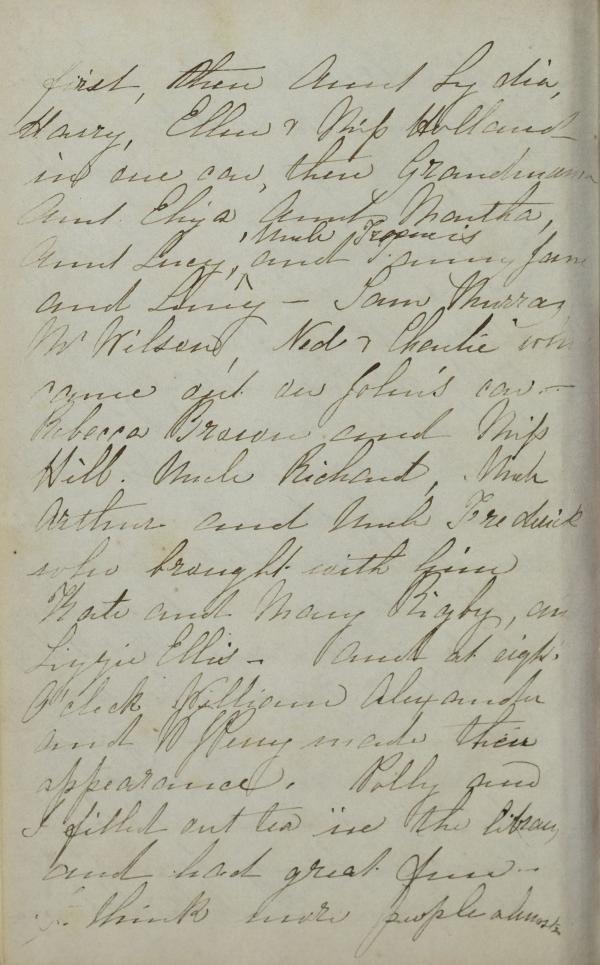 first, then Aunt Lydia,
Harry, Ellen & Miss Holland
in one car, then Grandmama
Aunt Eliza Aunt Martha,
Uncle Francis
Aunt Lucy, and Fanny Jane
and Liney – Sam Murray
Mr Wilson, Ned & Charlie who
came out on John's car –
Rebecca Brown and Miss
Hill. Uncle Richard, Uncle
Arthur and Uncle Frederick
who brought with him
Kate and Mary Rigby, an
Lizzie Ellis – and at eight
O'clock William Alexander
and made their
appearance. Polly and
I filled out tea in the library
and had great fun –
I think more people almost